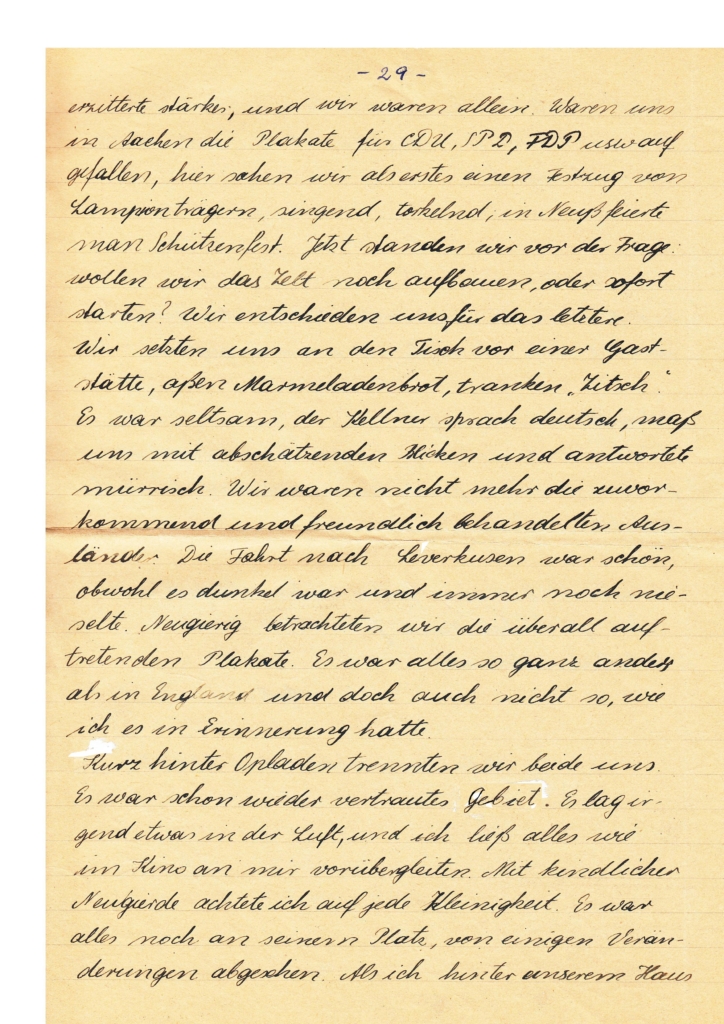 - 29 -
erzitterte stärker, und wir waren allein. Waren uns
in Aachen die Plakate für CDU, SPD, FDP usw auf
gefallen, hier sahen wir als erstes einen Festzug von
Lampionträgern, singend, torkelnd, in Neuß feierte
man Schützenfest. Jetzt standen wir vor der Frage:
wollen wir das Zelt noch aufbauen, oder sofort
starten? Wir entschieden uns für das letztere.
Wir setzten uns an den Tisch vor einer Gast-
stätte, aßen Marmeladenbrot, tranken „Zitsch“.
Es war seltsam, der Kellner sprach deutsch, maß
uns mit abschätzenden Blicken und antwortete
mürrisch. Wir waren nicht mehr die zuvor-
kommend und freundlich behandelten Aus-
länder. Die Fahrt nach Leverkusen war schön,
obwohl es dunkel war und immer noch nie-
selte. Neugierig betrachteten wir die überall auf-
tretenden Plakate. Es war alles so ganz anders
als in England und doch auch nicht so, wie
ich es in Erinnerung hatte.
Kurz hinter Opladen trennten wir beide uns.
Es war schon wieder vertrautes Gebiet. Es lag ir-
gend etwas in der Luft, und ich ließ alles wie
im Kino an mir vorübergleiten. Mit kindlicher
Neugierde achtete ich auf jede Kleinigkeit. Es war
alles noch an seinem Platz, von einigen Verän-
derungen abgesehen. Als ich hinter unserem Haus